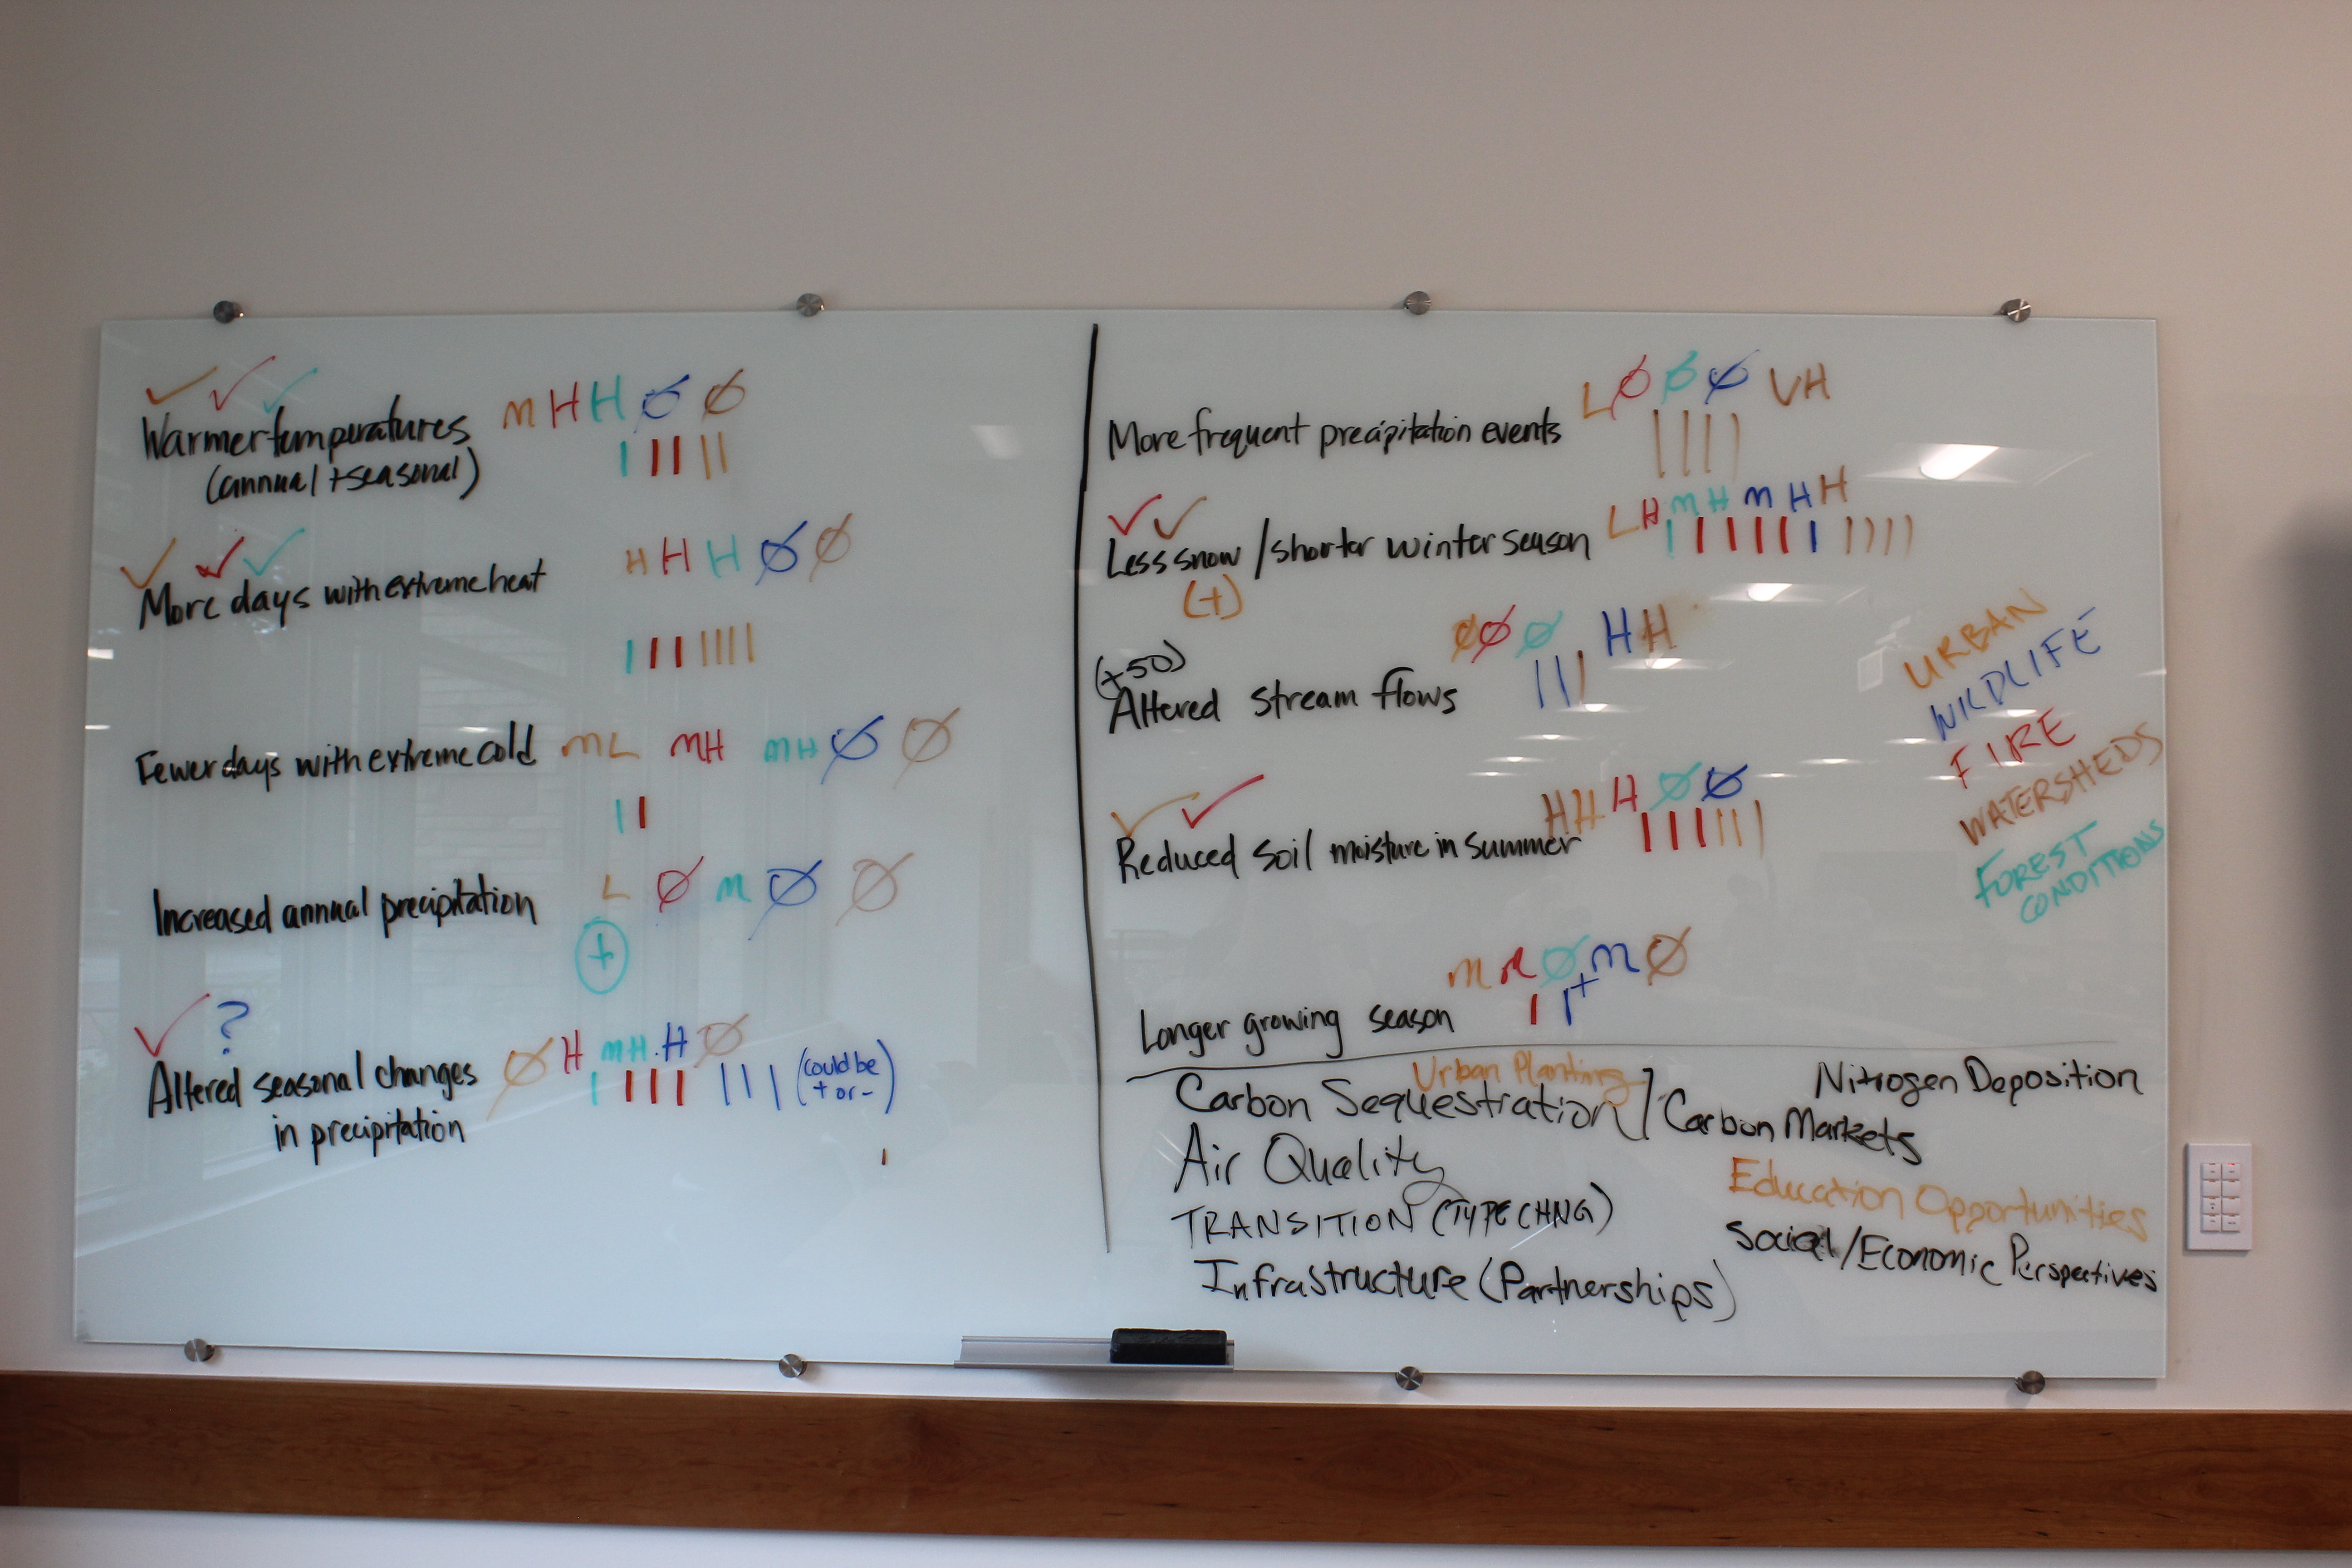 M H H Ø Ø
Warmer temperatures
(annual + seasonal)
H H H Ø Ø
More days with extreme heat
Fewer days with extreme cold ML MH MH Ø Ø
Increased annual precipitation L Ø M Ø Ø
+
?
Ø H MH H Ø
Altered seasonal changes
in precipitation
(could be
+ or -)
L Ø Ø Ø VH
More frequent precipitation events
L H MH MH H
Less snow / shorter winter season
(+)
Ø Ø Ø H H
Altered stream flows
H H H Ø Ø
Reduced soil moisture in summer
M M Ø M Ø
+
Longer growing season
URBAN
WILDLIFE
FIRE
WATERSHEDS
FOREST
CONDITIONS
Urban Planting
Carbon Sequestration / Carbon Markets
Nitrogen Deposition
Air Quality
Education Opportunities
TRANSITION (TYPE CHNG)
Social/Economic Perspectives
Infrastructure (Partnerships)